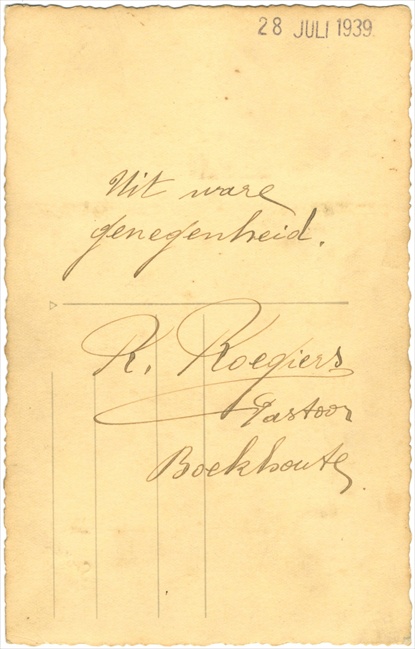 28 JULI 1939
Uit ware
genegenheid.
R. Roegiers
Pastoor
Boekhoute